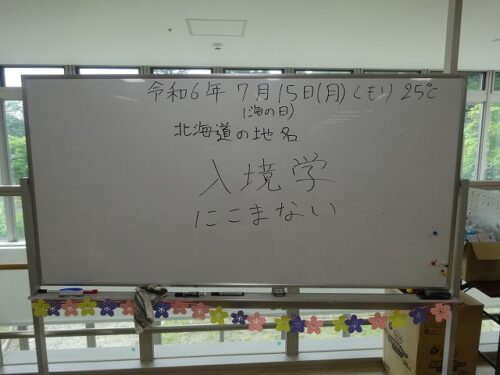 令和6年 7月15日(月) くもり 25℃
(海の日)
北海道の地名
入境学
にこまない